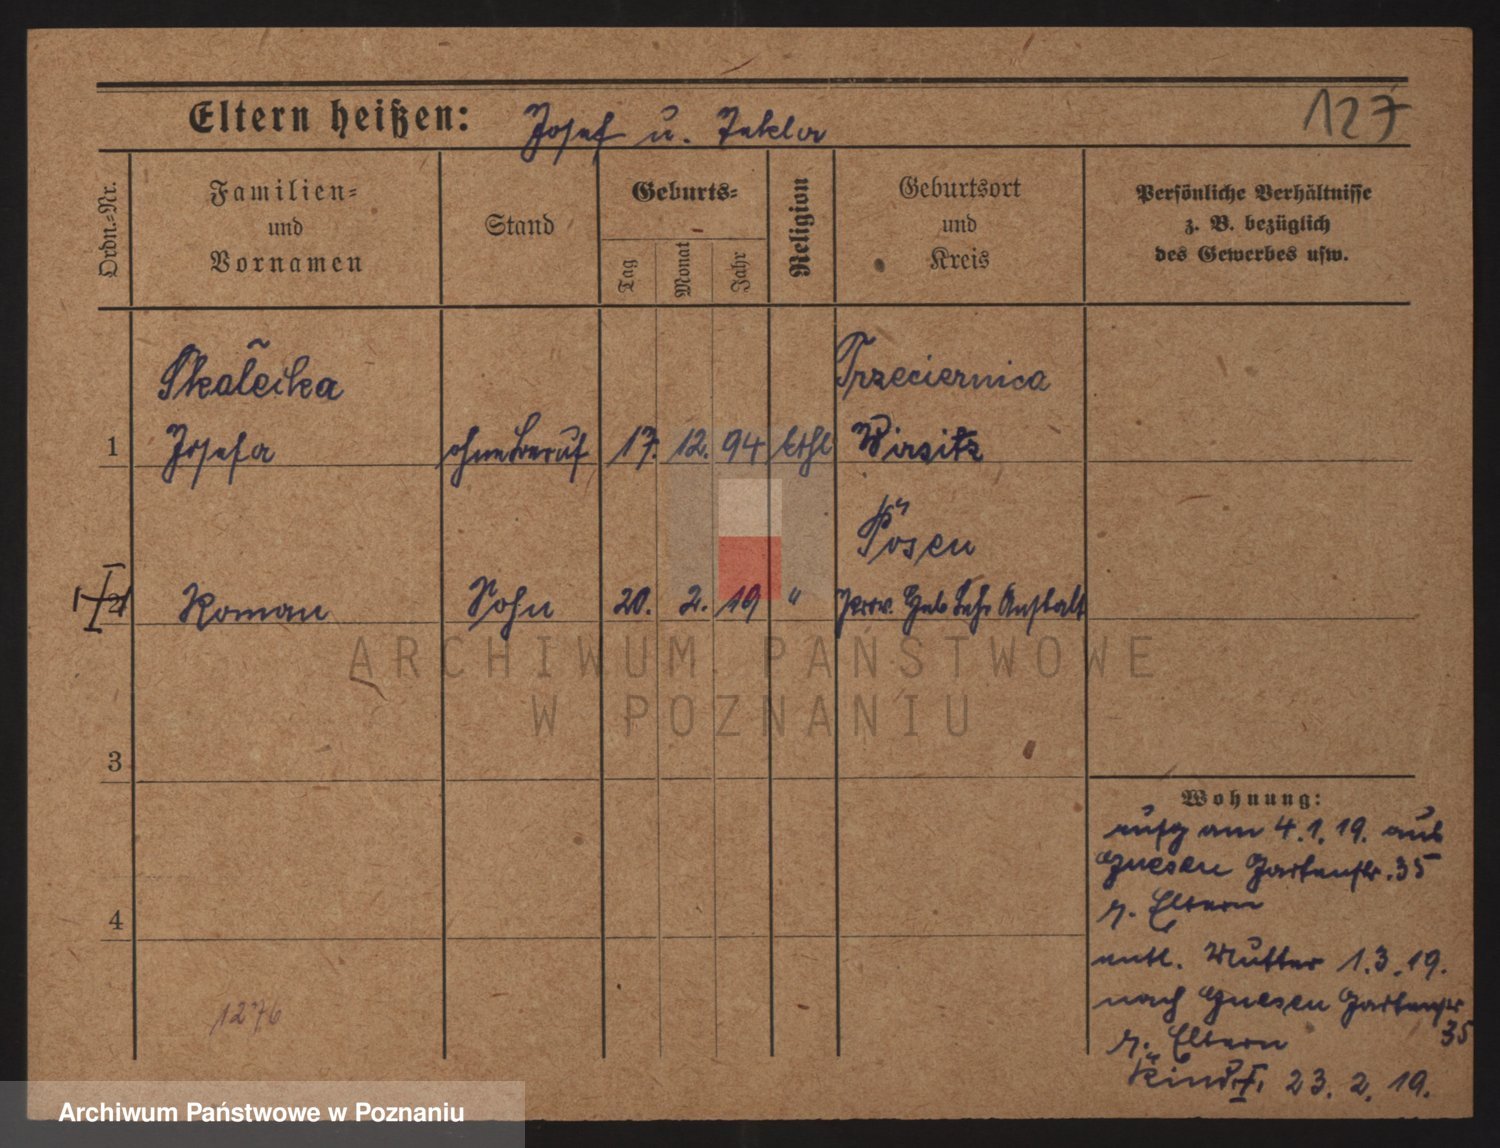 127
Eltern heißen: Josef u. Tekla
Ordn.-Nr.
Familien-
und
Vornamen
Stand
Geburts-
Tag
Monat
Jahr
Religion
Geburtsort
und
Kreis
Persönliche Verhältnisse
z. B. bezüglich
des Gewerbes usw.
Skalecka
Trzeciernica
1 Josefa ohne Beruf 17. 12. 94 kthl Wirsitz
Posen
2 Roman Sohn 20. 2. 19 " Prov. Heb Lehr Anstalt
ARCHIWUM PAŃSTWOWE
W POZNANIU
3
4
1276
Wohnung:
aufg am 4.1.19. aus
Gnesen Gartenstr. 35
z. Eltern
entl. Mutter 1.3.19.
nach Gnesen Gartenstr
35
z. Eltern
Kind †. 23. 2. 19.
Archiwum Państwowe w Poznaniu